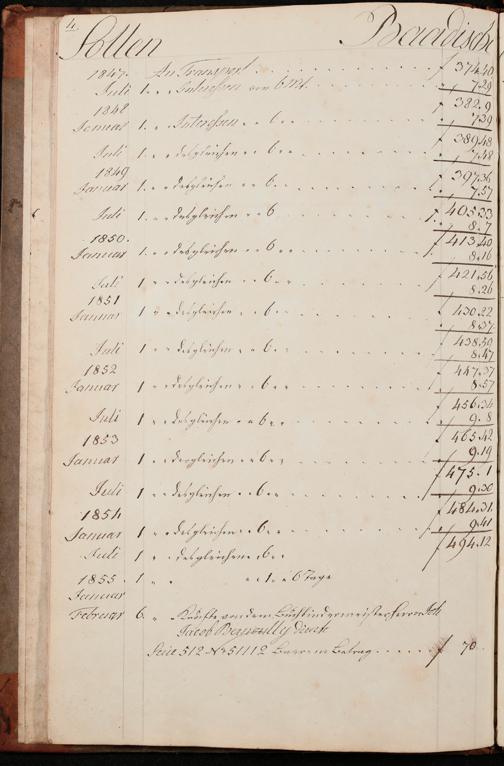 4.
Sollen Baadische
1847. An Transport f 374.40
Juli 1. " " Interessen von 6 Mt. " 7.29
f 382.9
1848
Januar 1. " " Interessen " " 6 " " 7.39
f 389.48
Juli 1. " " desgleichen " " 6 " " 7.48
f 397.36
1849
Januar 1. " " desgleichen " " 6 " " 7.57
f 405.33
Juli 1. " " desgleichen " " 6 8.7
f 413.40
1850.
Januar 1. " " desgleichen " " 6 " " 8.16
f 421.56
Juli 1 " " desgleichen " " 6 " " 8.26
f 430.22
1851
Januar 1 " " desgleichen " " 6 " " 8.37
f 438.59
Juli 1 " " desgleichen " " 6 " " 8.47
f 447.37
1852
Januar 1 " " desgleichen " " 6 " " 8.57
f 456.34
Juli 1 " " desgleichen " " 6 " " 9.8
f 465.42
1853
Januar 1 " " desgleichen " " 6 " " 9.19
f 475.1
Juli 1 " " desgleichen " " 6 " " 9.30
f 484.31
1854
Januar 1 " " desgleichen " " 6 " " 9.41
f 494.12
Juli 1 " " desgleichen " " 6 " "
1855 1 " " " " 1 " " 6 Tage
Januar
Februar 6. " Kaufte von dem Buchbindermeister Herrn
Jacob
Serie 512 No 51112 Betrag f 70